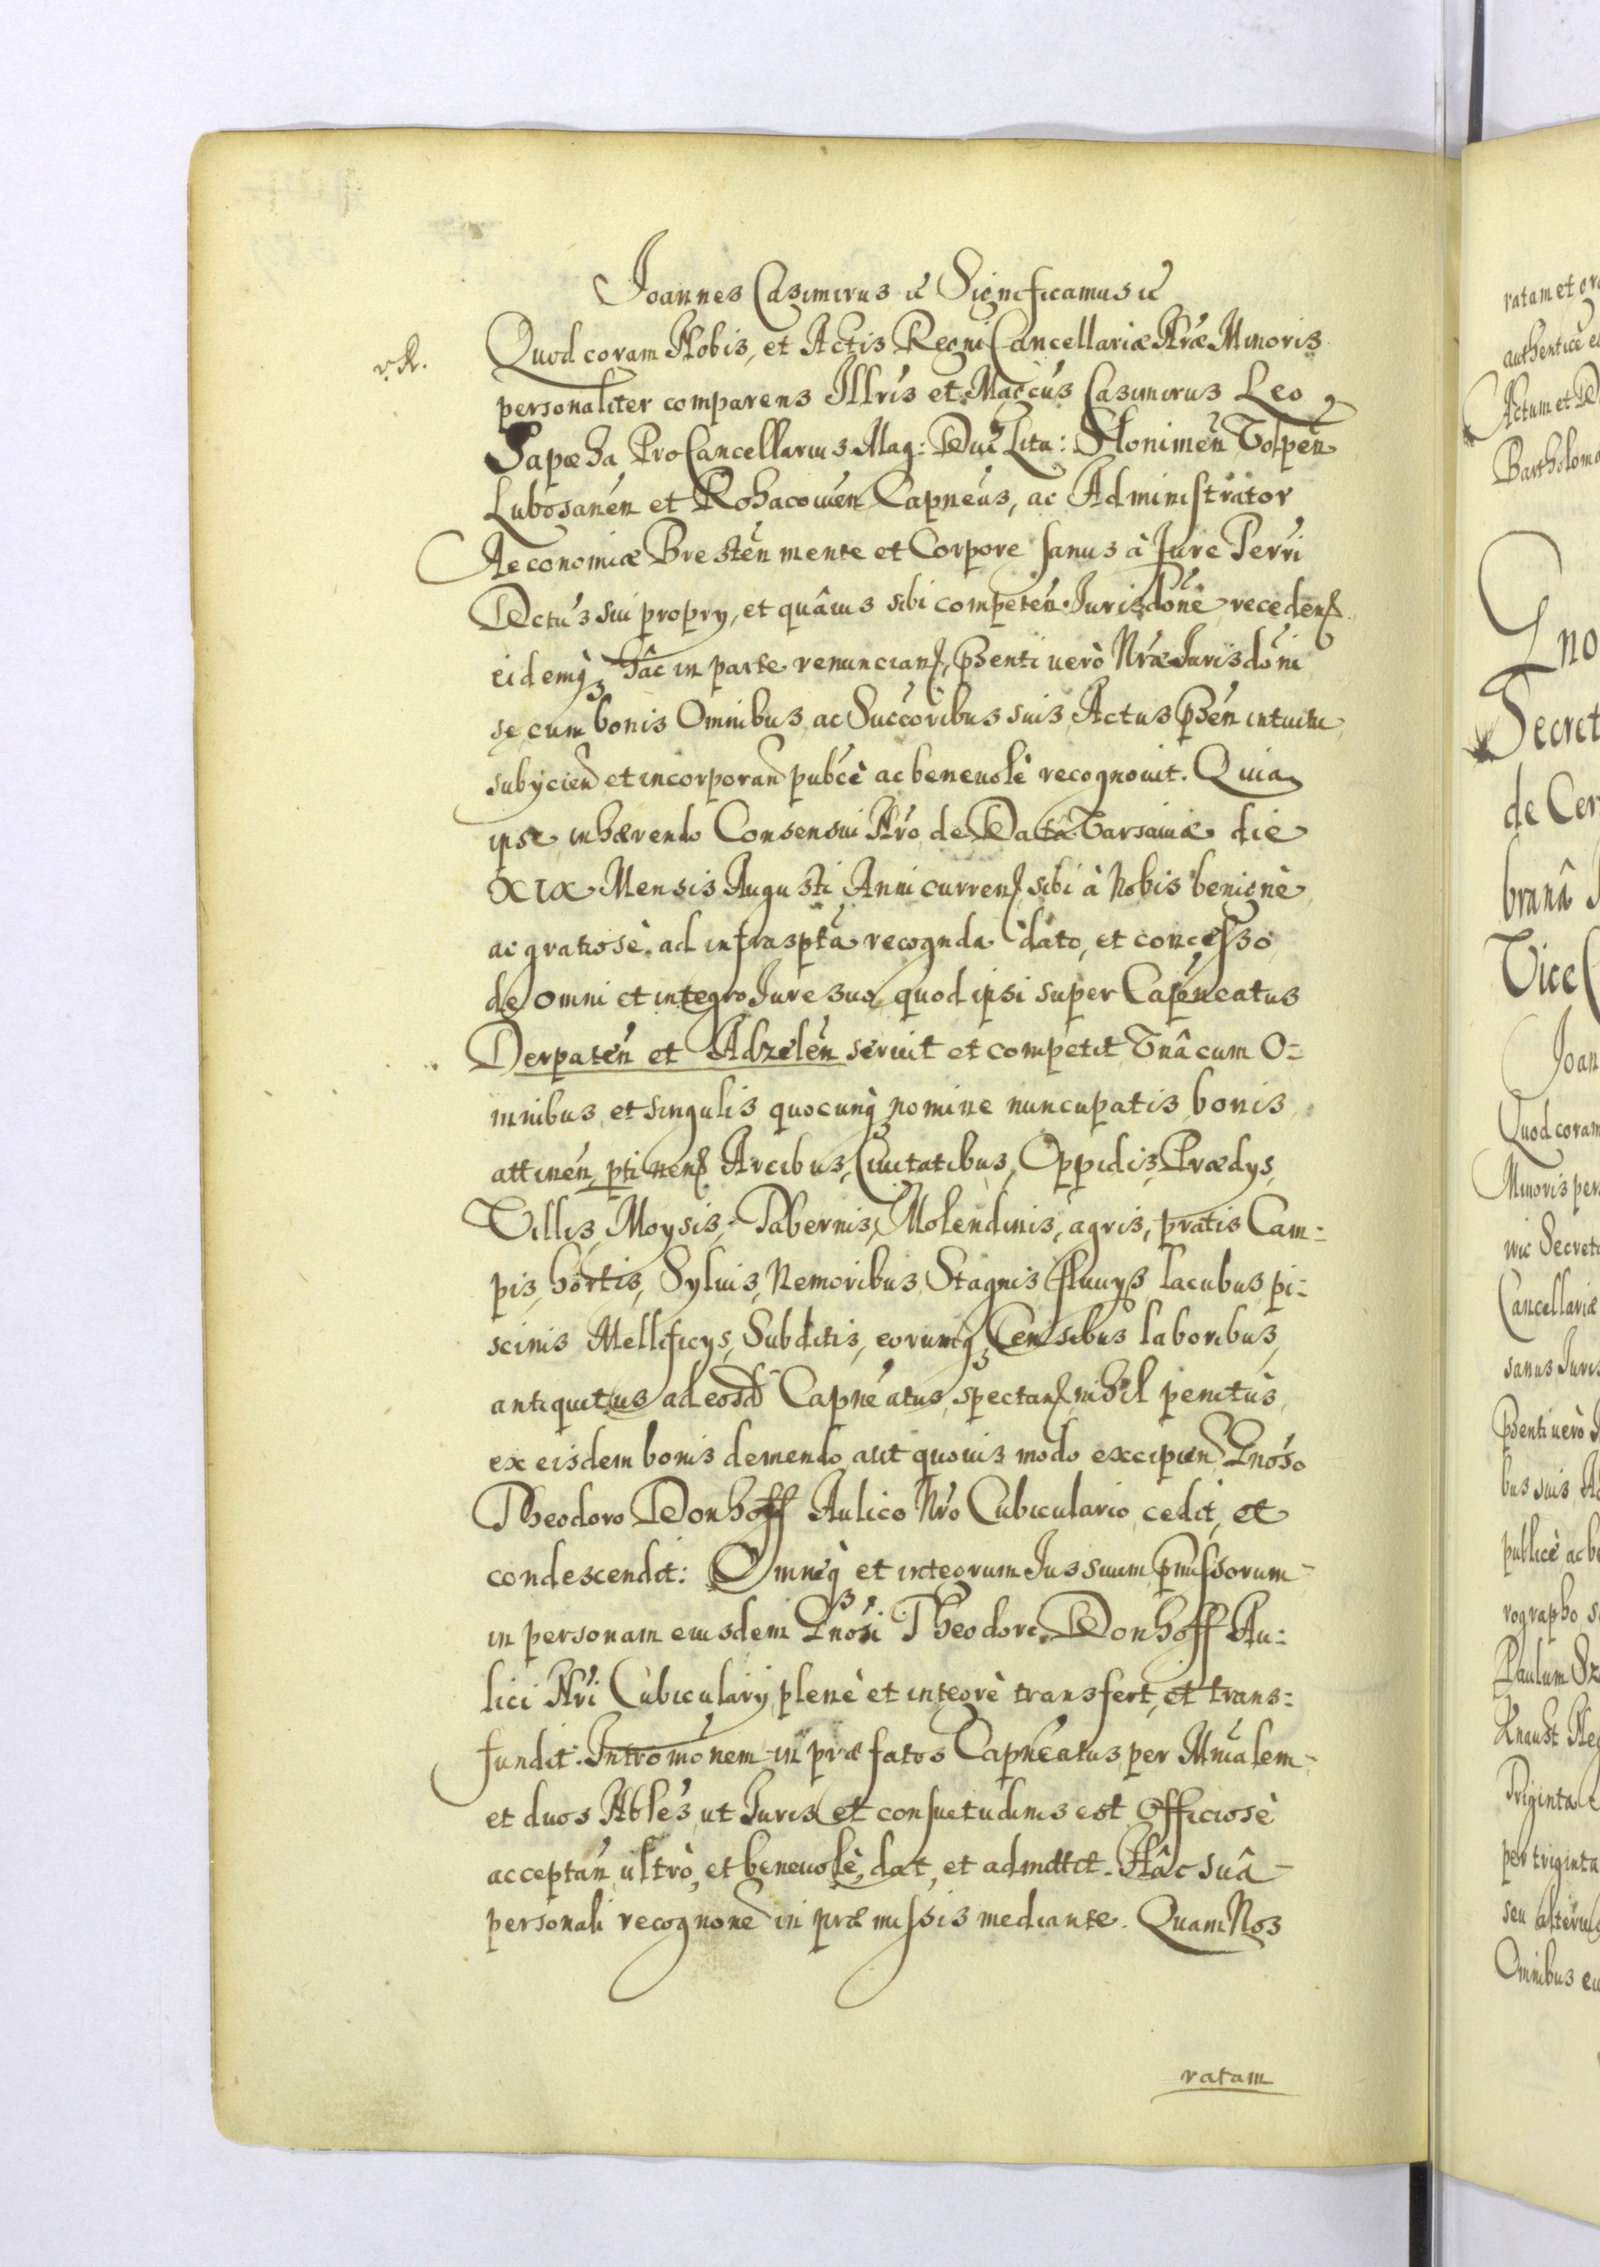 Joannes Casimirus etc Significamus etc
v. R.
Quod coram Nobis, et Actis Regni Cancellariæ Nræ Minoris
personaliter comparens Illris et Magcus Casimirus Leo
Sapæha ProCancellarius Mag: Duc Litu: Slonimen Volpen
Lubosanen et Rohacouien Capneus, ac Administrator
Aeconomiæ Bresten mente et Corpore sanus à Jure Terri
Dctus sui propry, et quâuis sibi competen Jurisdone receden
eidemq hâc in parte renuncian, psenti uerò Nræ Jurisdoni
se cum bonis Omnibus ac Succoribus suis Actus psen intuitu
subycien et incorporan pubcè ac beneuolè recognouit. Quia
ipse inhærendo Consensui Nro de Data Varsauiæ die
XIX Mensis Augusti Anni curren sibi à Nobis benignè
ac gratiosè ad infrascpta recognda dato, et concesso
de omni et integro Jure suo quod ipsi super Capneatus
Derpaten et Adzelen seruit et competit Vnâ cum O=
mnibus et singulis quocunq nomine nuncupatis bonis
attinen, ptinen Arcibus, Ciuitatibus, Oppidis, Prædys,
Villis, Moysis, Tabernis, Molendinis, agris, pratis Cam=
pis, hortis, Syluis, Nemoribus Stagnis fluuys lacubus pi=
scinis Mellificys, Subditis, eorumq Censibus laboribus,
antiquitus ad eosd Capneatus spectan nihil penitus
ex eisdem bonis demendo aut quouis modo excipien Gnoso
Theodoro Donhoff Aulico Nro Cubiculario cedit, et
condescendit: Omneq et integrum Jus suum pmissorum
in personam eiusdem Gnosi Theodori Donhoff Au=
lici Nri Cubiculary plenè et integrè transfert, et trans=
fundit. Intromonem in præfatos Capneatus per Mnialem
et duos Nbles ut Juris et consuetudinis est Officiosè
acceptan ultrò, et beneuolè dat, et admittit. Hâc suâ
personali recognone in præmissis mediante. Quam Nos
ratam
ratam et gra
authentice
Actum et D
Bartholoma
Gno
Secret
de Cer
branâ
Vice
Joan
Quod coram
Minoris per
wic Secret
Cancellariæ
sanus Juris
Psenti uerò
bus suis A
publicè ac be
rographo s
Paulum Sz
Knaust
Triginta
per triginta
seu alterius
Omnibus